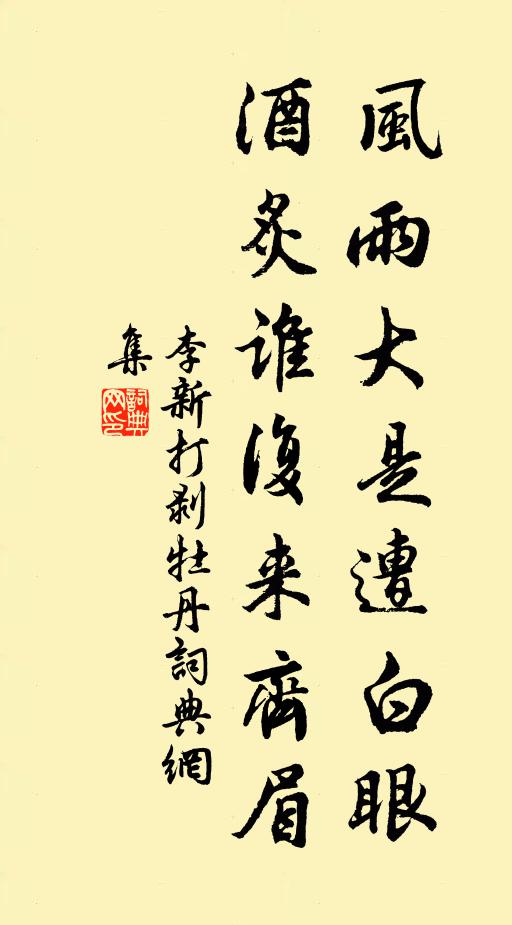 風雨大是遭白眼
酒炙誰復来齊眉
李新打剥牡丹詞典網
集
詞典
网印